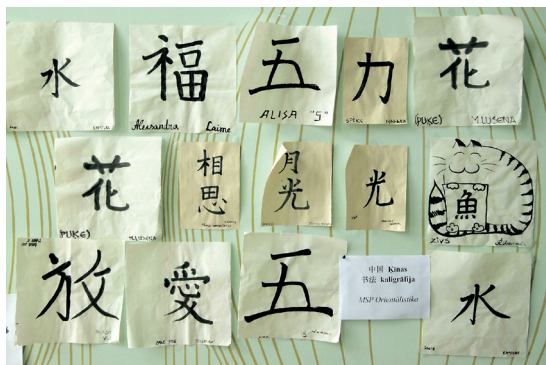 水
福
Alessandra Laime
五
ALISA "5"
力
SPĒKS
花
(PUĶE) M.LUSĒNA
花
(PUĶE)
相
思
月
光
光
魚
ZIVS
放
愛
五
中国 Ķīnas
书法 kaligrāfija
MSP Orientālistika
水